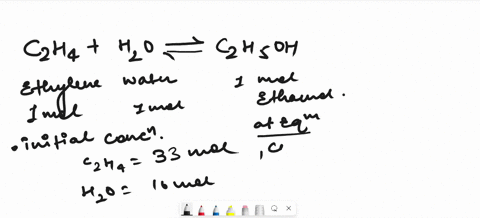 C2H4 + H2O ⇌ C2H5OH
Ethylene water 1 mol
1 mol 1 mol Ethanol.
.initial concn. at eqm
C2H4 = 33 mol , C
H2O = 10 mol